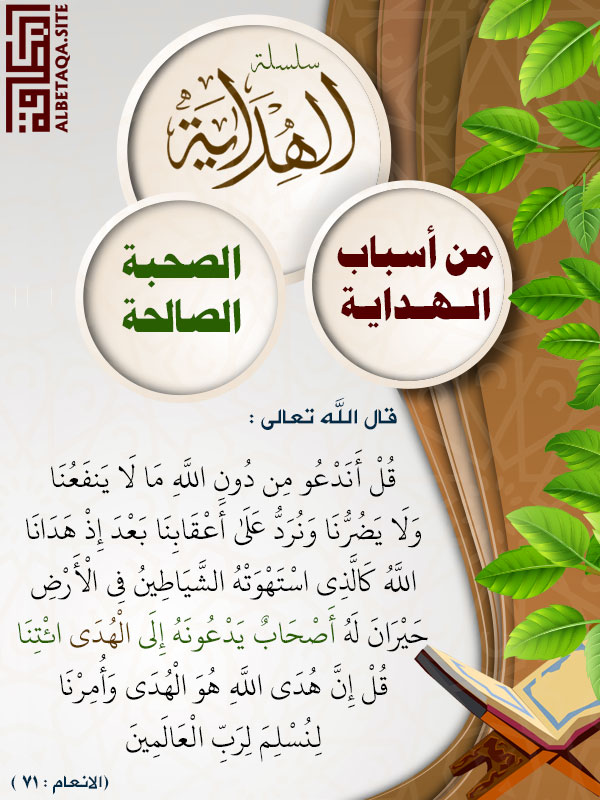 البطاقة
ALBETAQA.SITE
سلسلة
الهداية
من أسباب
الـهـدايـة
الصحبة
الصالحة
قال اللَّه تعالى :
قُلْ أَنَدْعُو مِن دُونِ اللَّهِ مَا لَا يَنفَعُنَا
وَلَا يَضُرُّنَا وَنُرَدُّ عَلَىٰ أَعْقَابِنَا بَعْدَ إِذْ هَدَانَا
اللَّهُ كَالَّذِي اسْتَهْوَتْهُ الشَّيَاطِينُ فِي الْأَرْضِ
حَيْرَانَ لَهُ أَصْحَابٌ يَدْعُونَهُ إِلَى الْهُدَى ائْتِنَا
قُلْ إِنَّ هُدَى اللَّهِ هُوَ الْهُدَى وَأُمِرْنَا
لِنُسْلِمَ لِرَبِّ الْعَالَمِينَ
(الانعام : ٧١ )